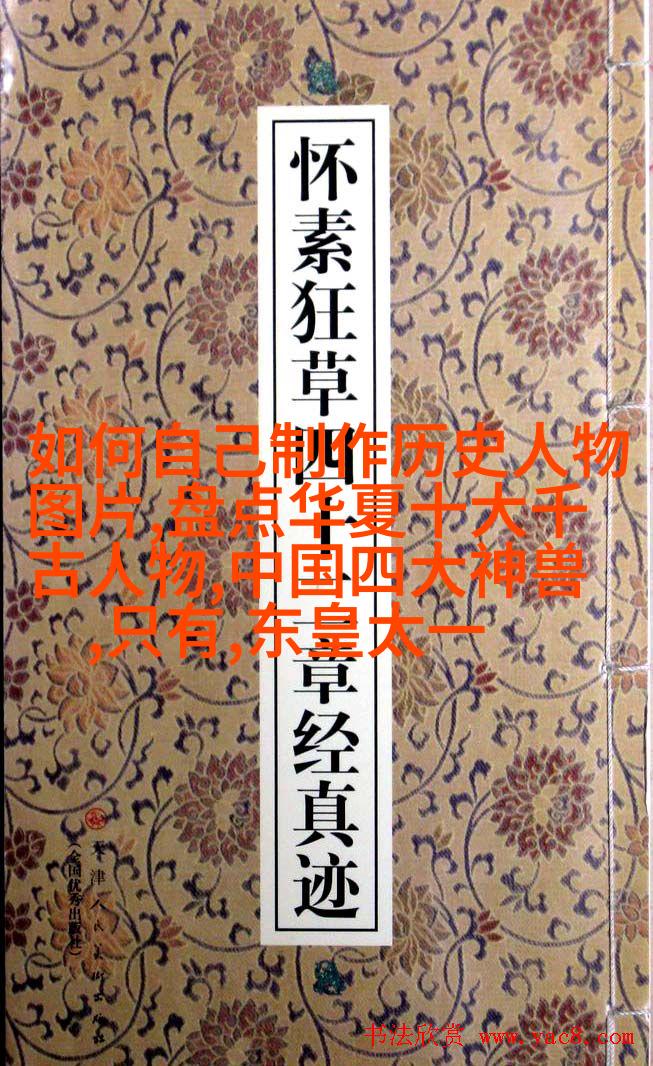 怀素狂草四十二章经真迹
如何自己制作历史人物
图片,盘点华夏十大千
古人物,中国四大神兽
,只有,东皇太一
天津人民美术出版社
(全国优秀出版社)
书法欣赏 www.yac8.com